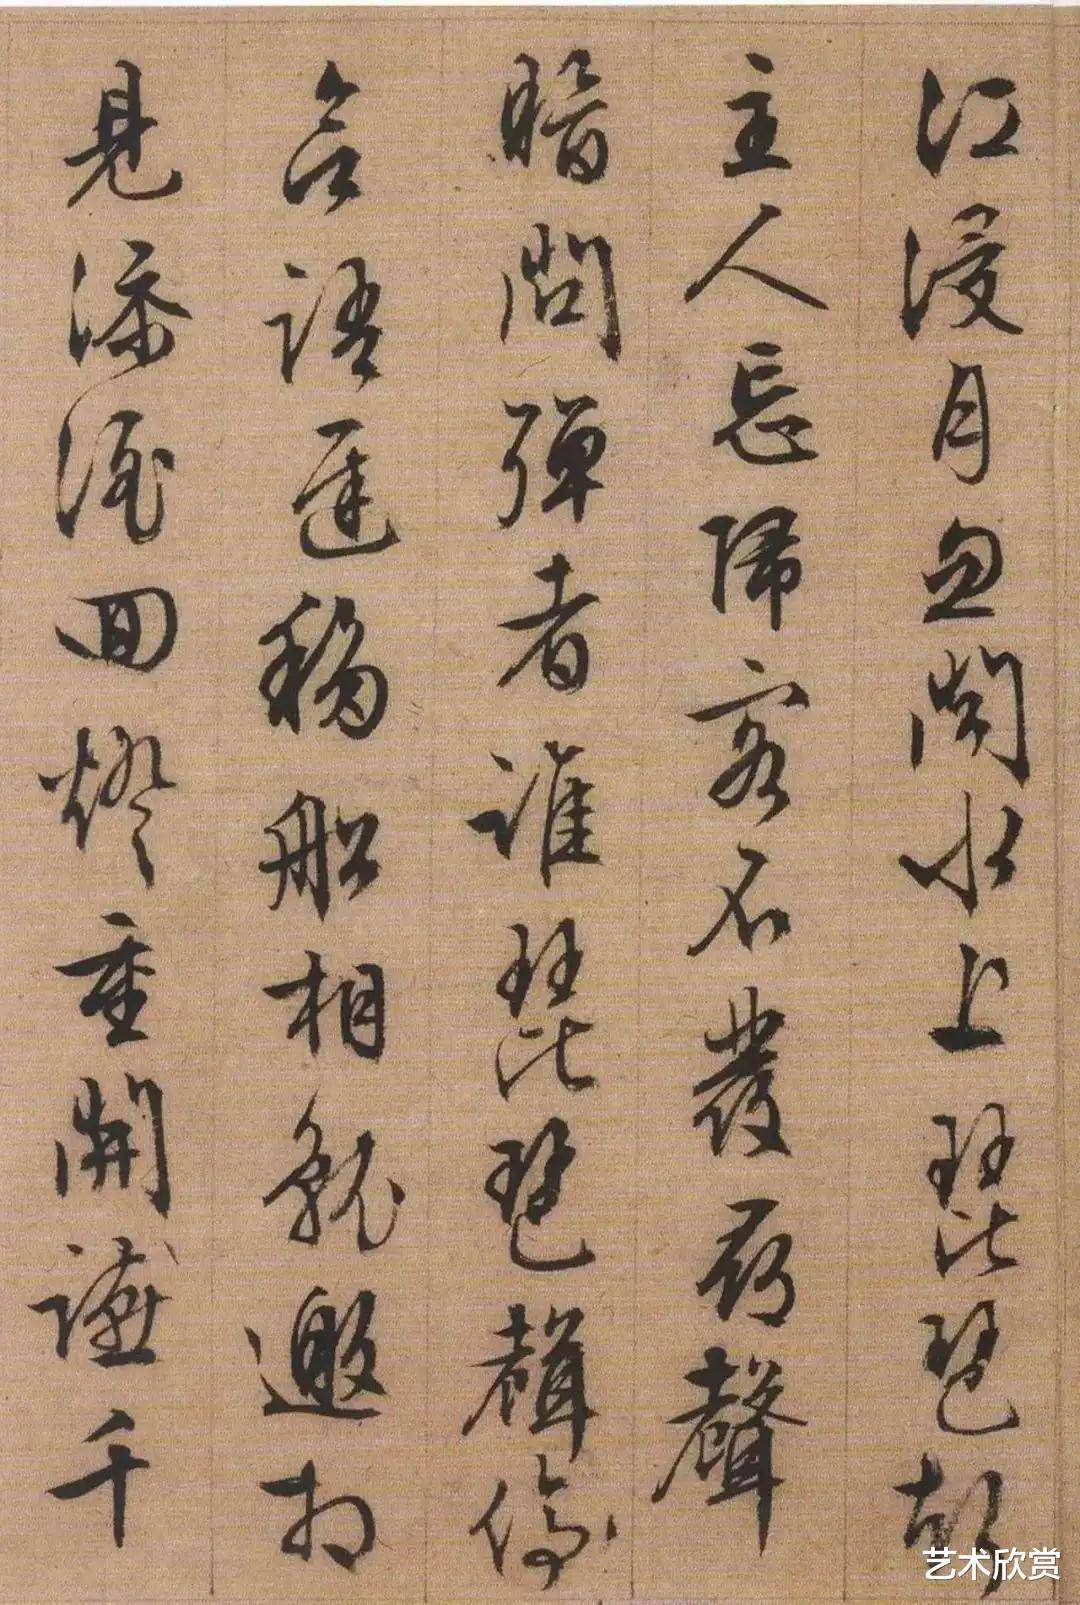 江浸月忽聞水上琵琶聲
主人忘歸客不發尋聲
暗問彈者誰琵琶聲停
含語遲移船相就邀相
見添酒回燈重開讌千
艺术欣赏